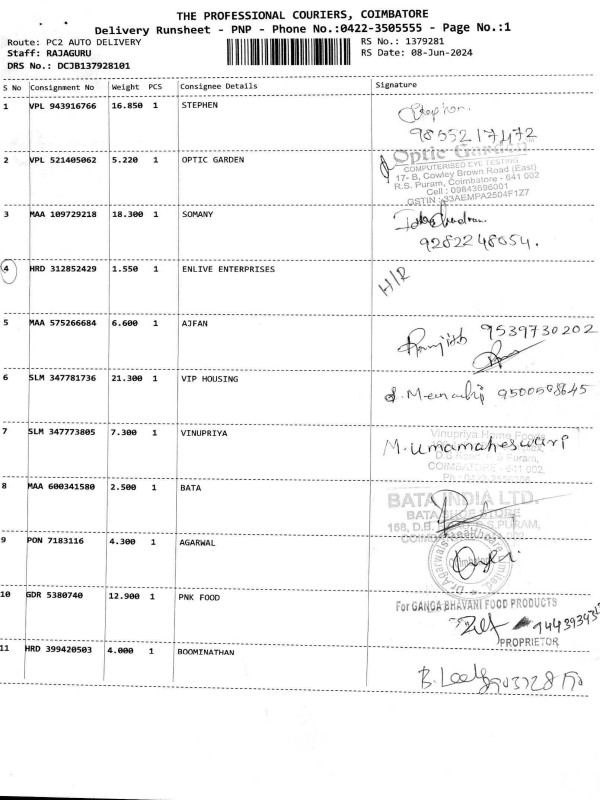 THE PROFESSIONAL COURIERS, COIMBATORE
Delivery Runsheet - PNP - Phone No.:0422-3505555 - Page No.:1
Route: PC2 AUTO DELIVERY RS No.: 1379281
Staff: RAJAGURU RS Date: 08-Jun-2024
DRS No.: DCJB137928101
S No Consignment No Weight PCS Consignee Details Signature
1 VPL 943916766 16.850 1 STEPHEN Stephen.
2 VPL 521405062 5.220 1 OPTIC GARDEN
Optic Garden
COMPUTERISED EYE TESTING
17- B, Cowley Brown Road (East)
R.S. Puram, Coimbatore - 641 002
Cell : 09843696001
GSTIN : 33AEMPA2504F1Z7
3 MAA 109729218 18.300 1 SOMANY
9282248054.
4 HRD 312852429 1.550 1 ENLIVE ENTERPRISES H/R
5 MAA 575266684 6.600 1 AJFAN Ranjith 9539730202
6 SLM 347781736 21.300 1 VIP HOUSING
7 SLM 347773805 7.300 1 VINUPRIYA M. Umamaheswari
Vinupriya Home Foods
COIMBATORE - 641 002.
8 MAA 600341580 2.500 1 BATA
BATA INDIA LTD.
BATA SHOE STORE
168, D.B. PURAM,
9 PON 7183116 4.300 1 AGARWAL
10 GDR 5380740 12.900 1 PNK FOOD
For GANGA BHAVANI FOOD PRODUCTS
PROPRIETOR
11 HRD 399420503 4.000 1 BOOMINATHAN